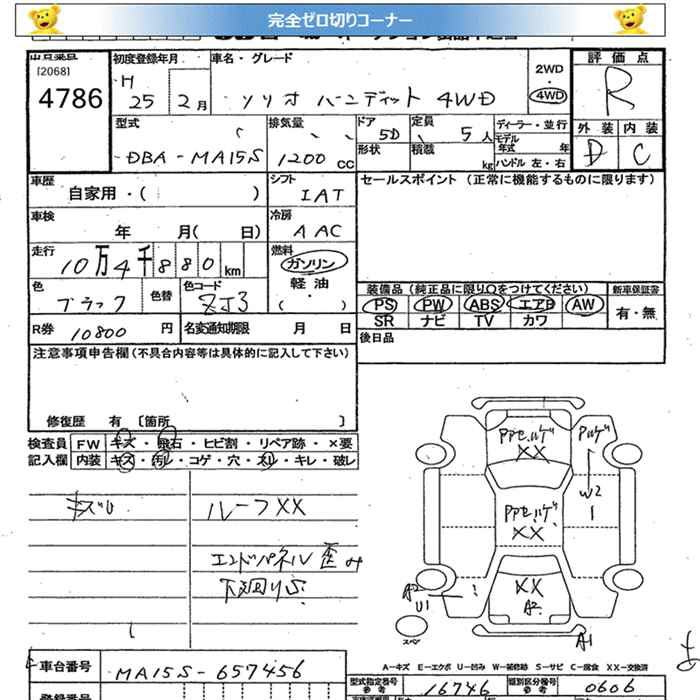 完全ゼロ切りコーナー
出品番号 初度登録年月 車名・グレード 評価点
[2068]
4786
H 25 2月 ソリオ バンディット 4WD
2WD・4WD
R
型式 排気量 ドア 5D 定員 5人 ディーラー・並行 外装 内装
DBA-MA15S 1200cc 形状 積載 kg モデル年式 年 ハンドル 左・右 D C
車歴 自家用・( ) シフト IAT セールスポイント(正常に機能するものに限ります)
車検 年 月( 日) 冷房 AAC
走行 10万4千880km 燃料 ガソリン 軽油 ・( )
色 ブラック 色替 色コード ZJ3
装備品(純正品に限りΩをつけてください) 新車保証書
PS PW ABS エアB AW 有・無
SR ナビ TV カワ
R券 10800円 名変通知期限 月 日 後日品
注意事項申告欄(不具合内容等は具体的に記入して下さい)
修復歴 有 〔箇所 〕
検査員 FW キズ・飛石・ヒビ割・リペア跡・×要
記入欄 内装 キズ・汚レ・コゲ・穴・スレ・キレ・破レ
キズU ルーフXX
エンドパネル 歪み
下廻りS
PPセ.ハゲ XX
Pハゲ
W2
1
PPセ.ハゲ XX
XX
A2
A2
U1
スペア
A1
A-キズ E-エクボ U-凹み W-補修跡 S-サビ C-腐食 XX-交換済
車台番号 MA15S-657456
型式指定番号 16746 類別区分番号 0606
参考 参考
登録番号